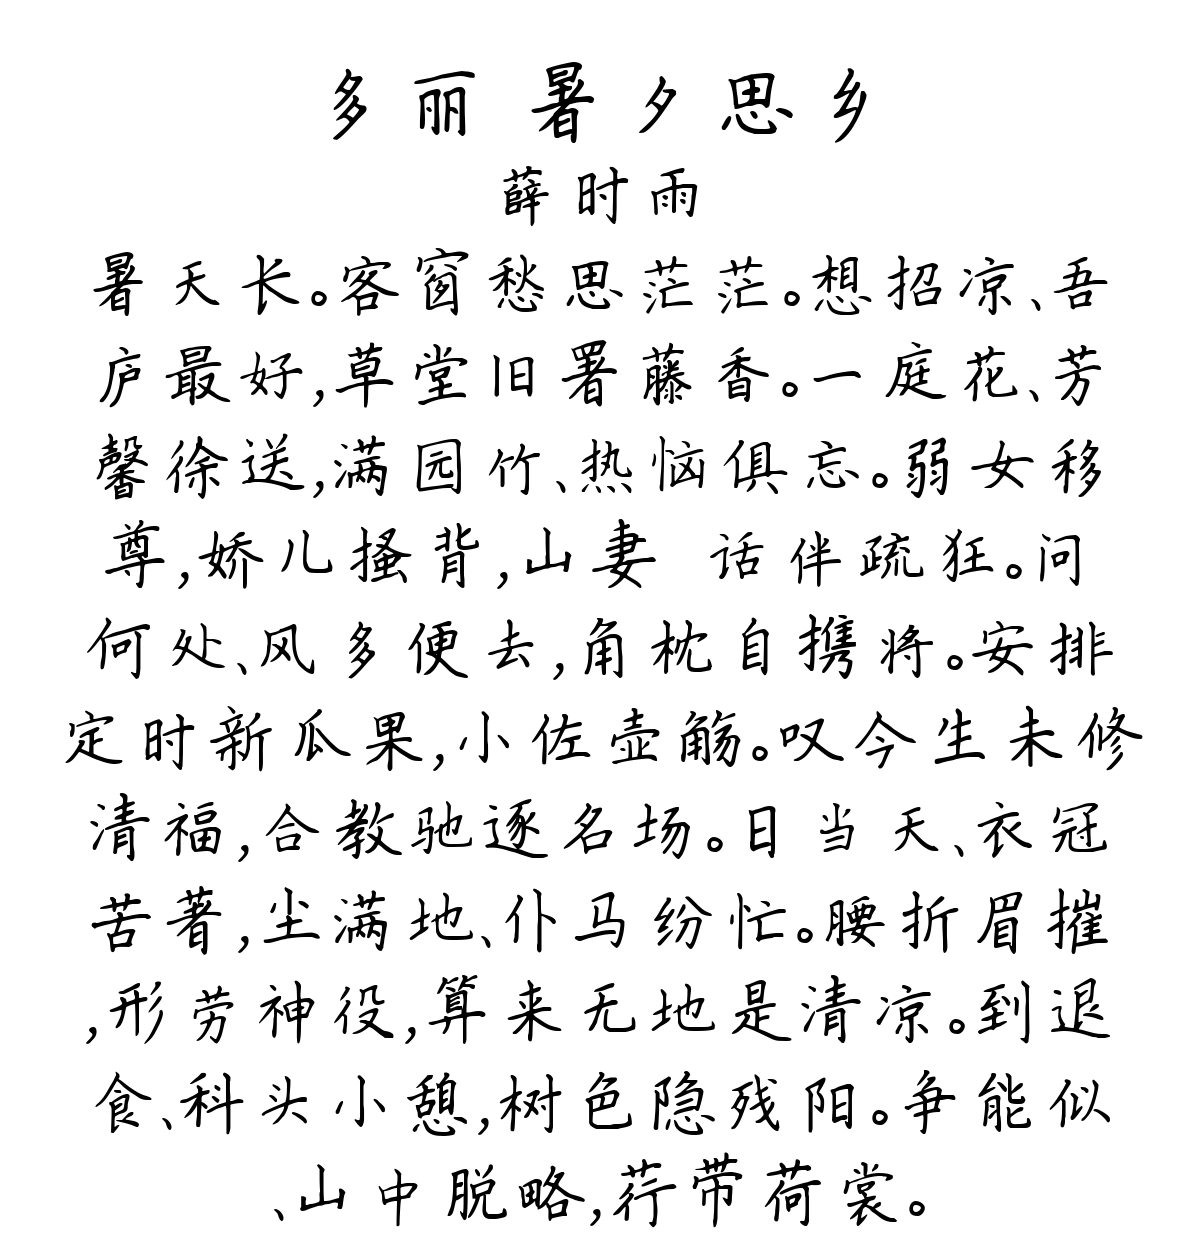 多丽 暑夕思乡
薛时雨
暑天长。客窗愁思茫茫。想招凉、吾
庐最好,草堂旧署藤香。一庭花、芳
馨徐送,满园竹、热恼俱忘。弱女移
尊,娇儿搔背,山妻 话伴疏狂。问
何处、风多便去,角枕自携将。安排
定时新瓜果,小佐壶觞。叹今生未修
清福,合教驰逐名场。日当天、衣冠
苦著,尘满地、仆马纷忙。腰折眉摧
,形劳神役,算来无地是清凉。到退
食、科头小憩,树色隐残阳。争能似
、山中脱略,荇带荷裳。